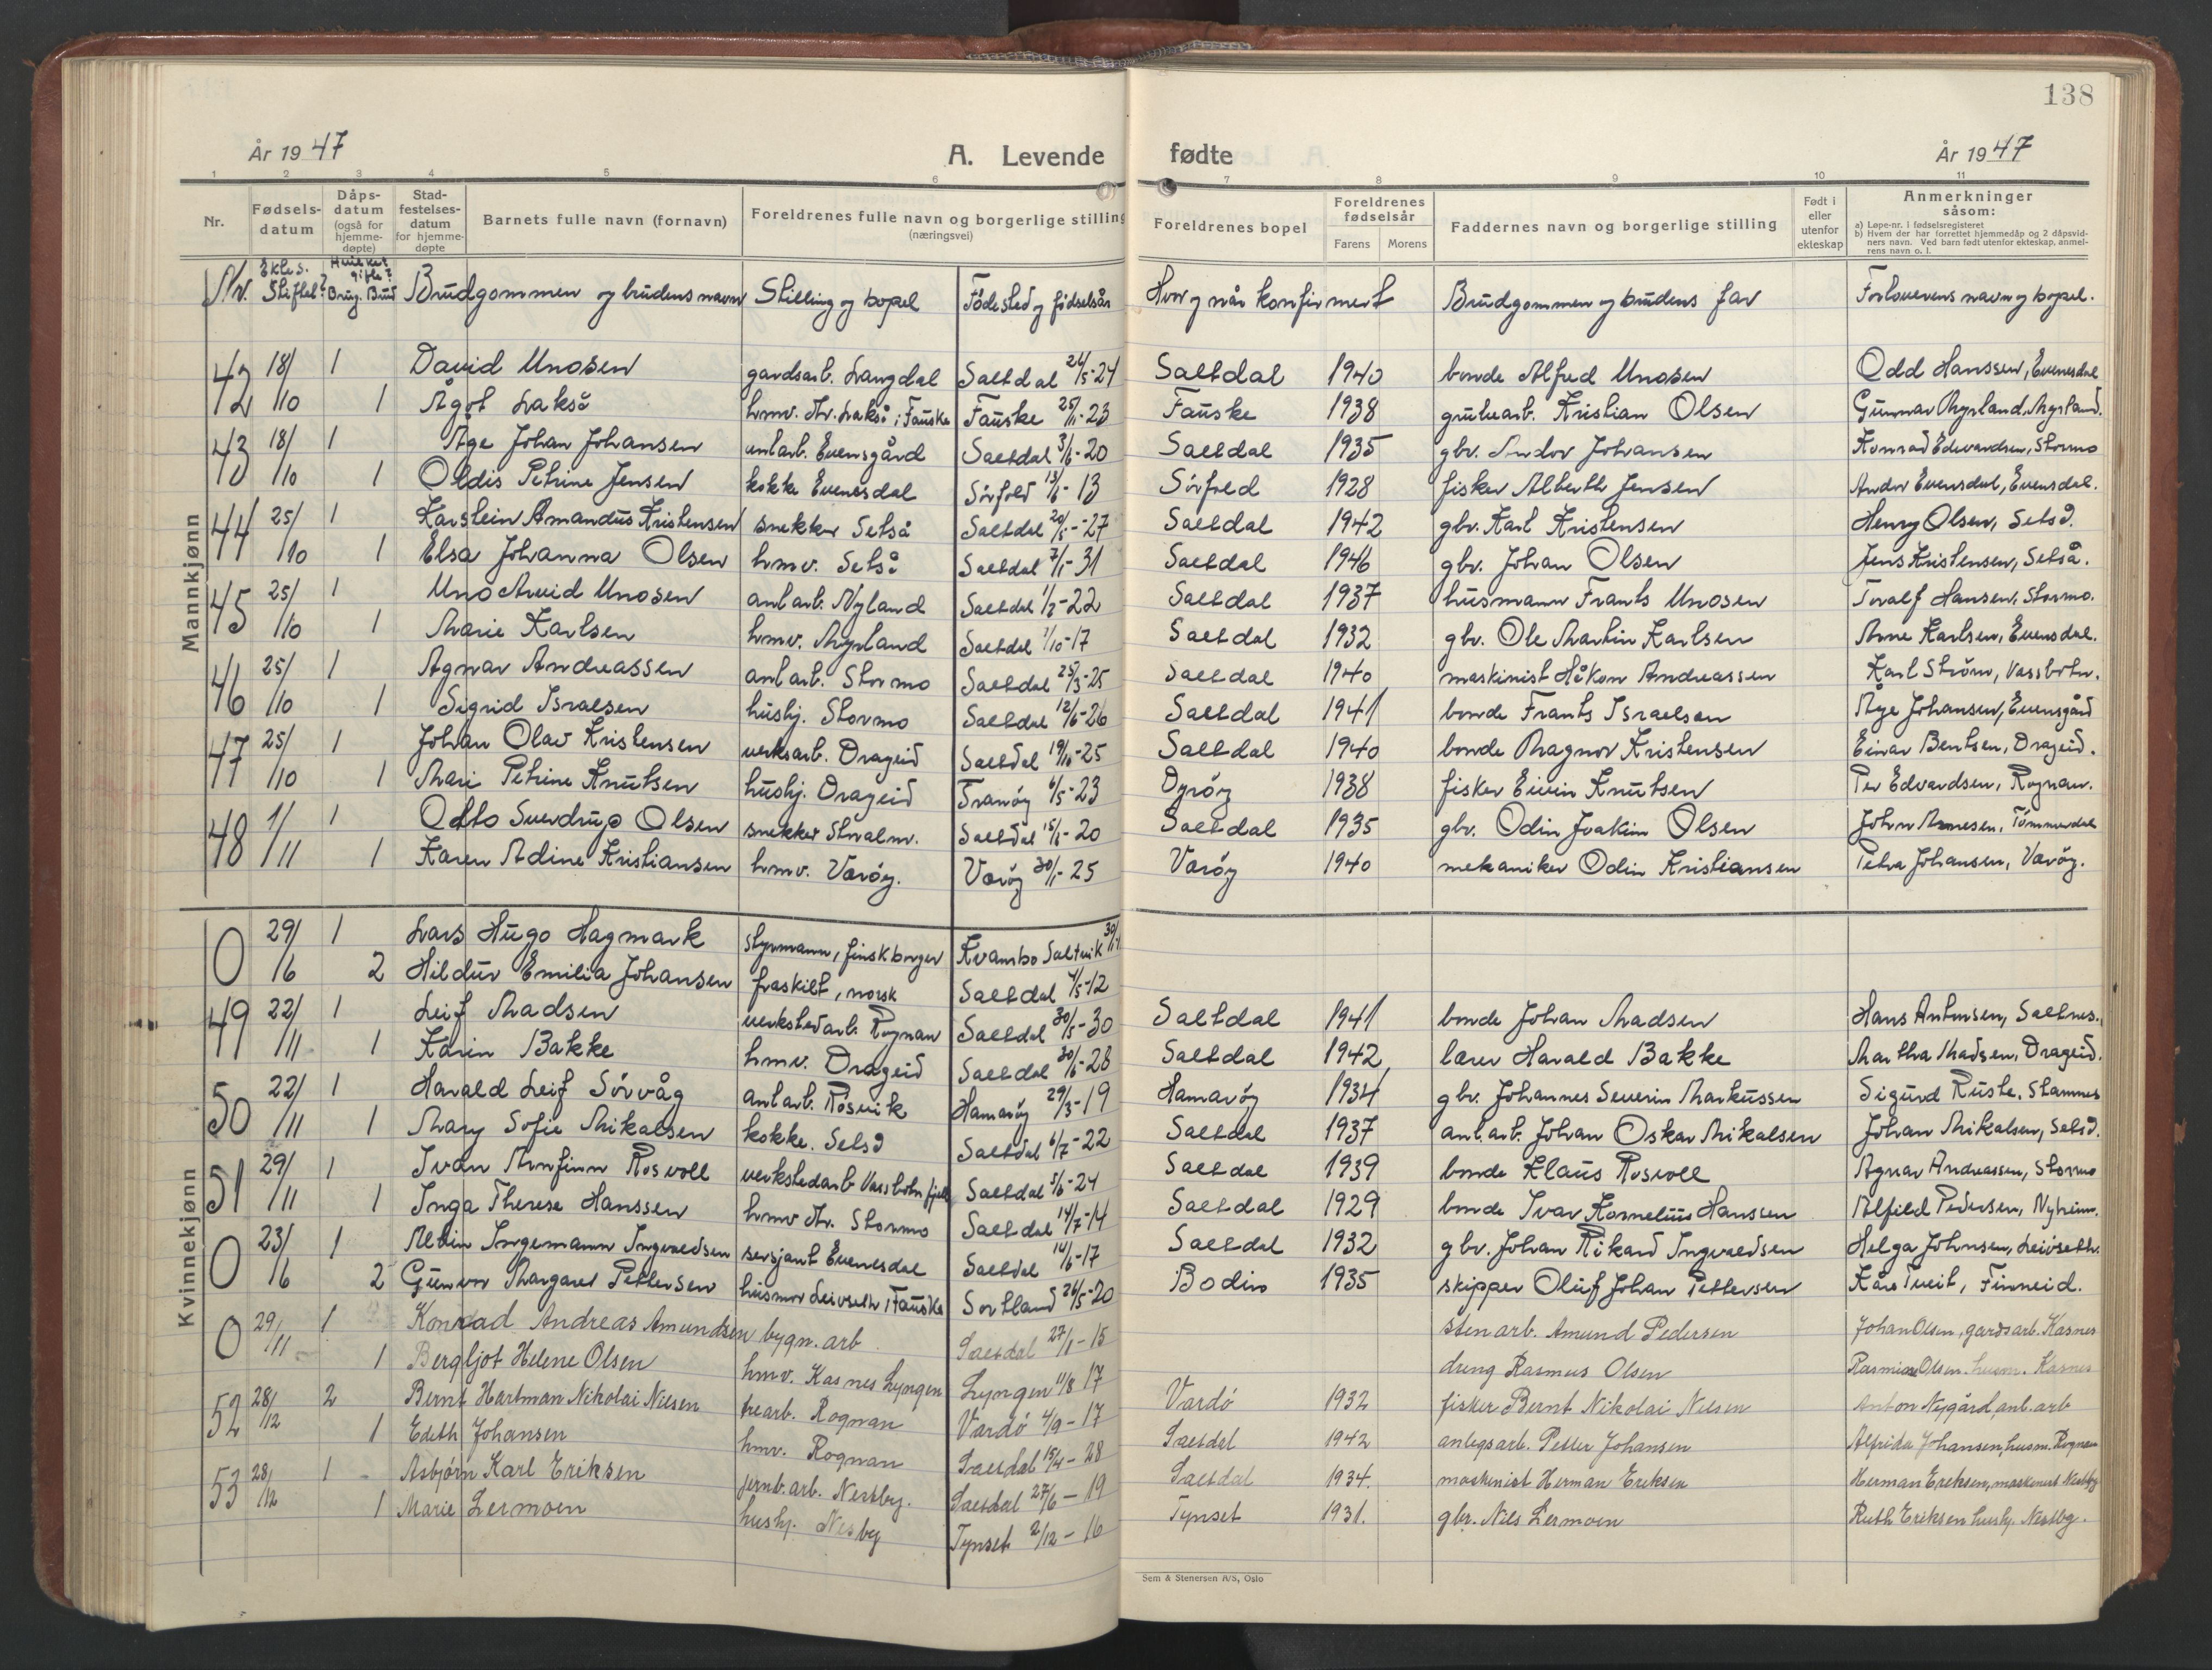 138
År 1947 A. Levende fødte År 1947
1 2 3 4 5 6 7 8 9 10 11
Nr. Fødsels-datum Dåps-datum (også for hjemme-døpte) Stad-festelses-datum for hjemme-døpte Barnets fulle navn (fornavn) Foreldrenes fulle navn og borgerlige stilling (næringsvei) Foreldrenes bopel Foreldrenes fødselsår Farens Morens Faddernes navn og borgerlige stilling Født i eller utenfor ekteskap Anmerkninger såsom: a) Løpe-nr. i fødselsregisteret b) Hvem der har forrettet hjemmedåp og 2 dåpsvidners navn. Ved barn født utenfor ekteskap, anmelrens navn o. l.
Nr. Ekles. Stiftet Brug. Brud Brudgommen og brudens navn Stilling og bopel Fødested og fødselsår Hvor og når konfirmert Brudgommen og brudens far Forloverens navn og bopel.
Mannkjønn
42 18/ 1 David Unosen gardsarb. Langdal Saltdal 24/5-24 Saltdal 1940 bonde Alfred Unosen Odd Hanssen, Evenesdal
/10 1 Ågot Lakså hmv. Lakså i Fauske Fauske 25/11-23 Fauske 1938 gruvearb. Kristian Olsen Gunnar Myrland, Myrland.
43 18/ 1 Åge Johan Johansen anl.arb. Evensgård Saltdal 3/6-20 Saltdal 1935 gbr. Andor Johansen Konrad Edvardsen, Stormo
/10 1 Oldis Petrine Jensen kokke Evenesdal Sørfold 13/6-13 Sørfold 1928 fisker Alberth Jensen Andor Evensdal, Evensdal.
44 25/ 1 Karstein Amandus Kristensen snekker Setså Saltdal 20/5-27 Saltdal 1942 gbr. Karl Kristensen Henry Olsen, Setså.
/10 1 Elsa Johanna Olsen hmv. Setså Saltdal 7/1-31 Saltdal 1946 gbr. Johan Olsen Jens Kristensen, Setså.
45 25/ 1 Uno Arvid Unosen anl.arb. Nyland Saltdal 1/2-22 Saltdal 1937 husmann Frants Unosen Toralf Hansen, Stormo.
/10 1 Marie Karlsen hmv. Myrland Saltdal 7/10-17 Saltdal 1932 gbr. Ole Martin Karlsen Arne Karlsen, Evensdal.
46 25/ 1 Agnar Andreassen anl.arb. Stormo Saltdal 25/3-25 Saltdal 1940 maskinist Håkon Andreassen Karl Strøm, Vassbotn.
/10 1 Sigrid Israelsen hushj. Stormo Saltdal 12/6-26 Saltdal 1941 bonde Frants Israelsen Åge Johansen, Evensgård
47 25/ 1 Johan Olav Kristensen verksarb. Drageid Saltdal 19/10-25 Saltdal 1940 bonde Magnor Kristensen Einar Bentsen, Drageid.
/10 1 Mari Petrine Knutsen hushj. Drageid Tranøy 6/5-23 Dyrøy 1938 fisker Eivin Knutsen Per Edvardsen, Rognan.
48 1/ 1 Otto Sverdrup Olsen snekker Storalm. Saltdal 15/1-20 Saltdal 1935 gbr. Odin Joakim Olsen John Arnesen, Tømmerdal
/11 1 Karen Adine Kristiansen hmv. Værøy. Værøy 30/1-25 Værøy 1940 mekaniker Odin Kristiansen Petra Johansen, Værøy.
Kvinnekjønn
0 29/ 1 Lars Hugo Hagmark styrmann, finsk borger Kvambo Saltvik
/6 2 Hildur Emilia Johansen fraskilt, norsk Saltdal 4/5-12
49 22/ 1 Leif Madsen verkstedarb. Rognan Saltdal 30/5-30 Saltdal 1941 bonde Johan Madsen Hans Antonsen, Saltnes.
/11 1 Karin Bakke hmv. Drageid Saltdal 30/6-28 Saltdal 1942 lærer Harald Bakke Martha Madsen, Drageid.
50 22/ 1 Harald Leif Sørvåg anl.arb. Røsvik Hamarøy 29/3-19 Hamarøy 1934 gbr. Johannes Severin Markussen Sigurd Ruste, Stamnes
/11 1 Mary Sofie Mikalsen kokke. Setså Saltdal 6/7-22 Saltdal 1937 anl.arb. Johan Oskar Mikalsen Johan Mikalsen, Setså.
51 29/ 1 Ivan Arnfinn Rosvoll verkstedarb Vassbotnfjell Saltdal 5/6-24 Saltdal 1939 bonde Klaus Rosvoll Agnar Andreassen, Stormo
/11 1 Inga Therese Hanssen hmv Stormo Saltdal 14/7-14 Saltdal 1929 bonde Ivar Kornelius Hanssen Alfild Pedersen, Nyheim.
0 23/ 1 Alvin Ingemann Ingvaldsen sersjant Evenesdal Saltdal 14/6-17 Saltdal 1932 gbr. Johan Rikard Ingvaldsen Helga Johnsen, Leivseth.
/6 2 Gunvor Margaret Pettersen husmor Leivseth, Fauske Sortland 26/5-20 Bodin 1935 skipper Oluf Johan Pettersen Kåre Tveit, Finneid.
0 29/ 1 Konrad Andreas Amundsen bygn. arb Saltdal 27/1-15 stenarb. Amund Pedersen Johan Olsen, gardsarb. Kasnes
/11 1 Bergljot Helene Olsen hmv. Kasnes Lyngen Lyngen 11/8 17 dreng Rasmus Olsen Rasmine Olsen. husm. Kasnes
52 28/ 2 Bernt Hartman Nikolai Nilsen trearb. Rognan Vardö 4/9-17 Vardö 1932 fisker Bernt Nikolai Nilsen Anton Nygård, anl. arb
/12 1 Edith Johansen hmv. Rognan Saltdal 15/4-28 Saltdal 1942 anlegsarb. Petter Johansen Alfrida Johansen, husm. Rognan
53 28/ 1 Asbjørn Karl Eriksen jernb.arb. Nestby. Saltdal 27/6-19 Saltdal 1934. maskinist Herman Eriksen Herman Eriksen, maskinist Nestby
/12 1 Marie Lermoen hushj. Nesby Tynset 2/12-16 Tynset 1931. gbr. Nils Lermoen Ruth Eriksen hushj. Nestby.
Sem & Stenersen A/S, Oslo